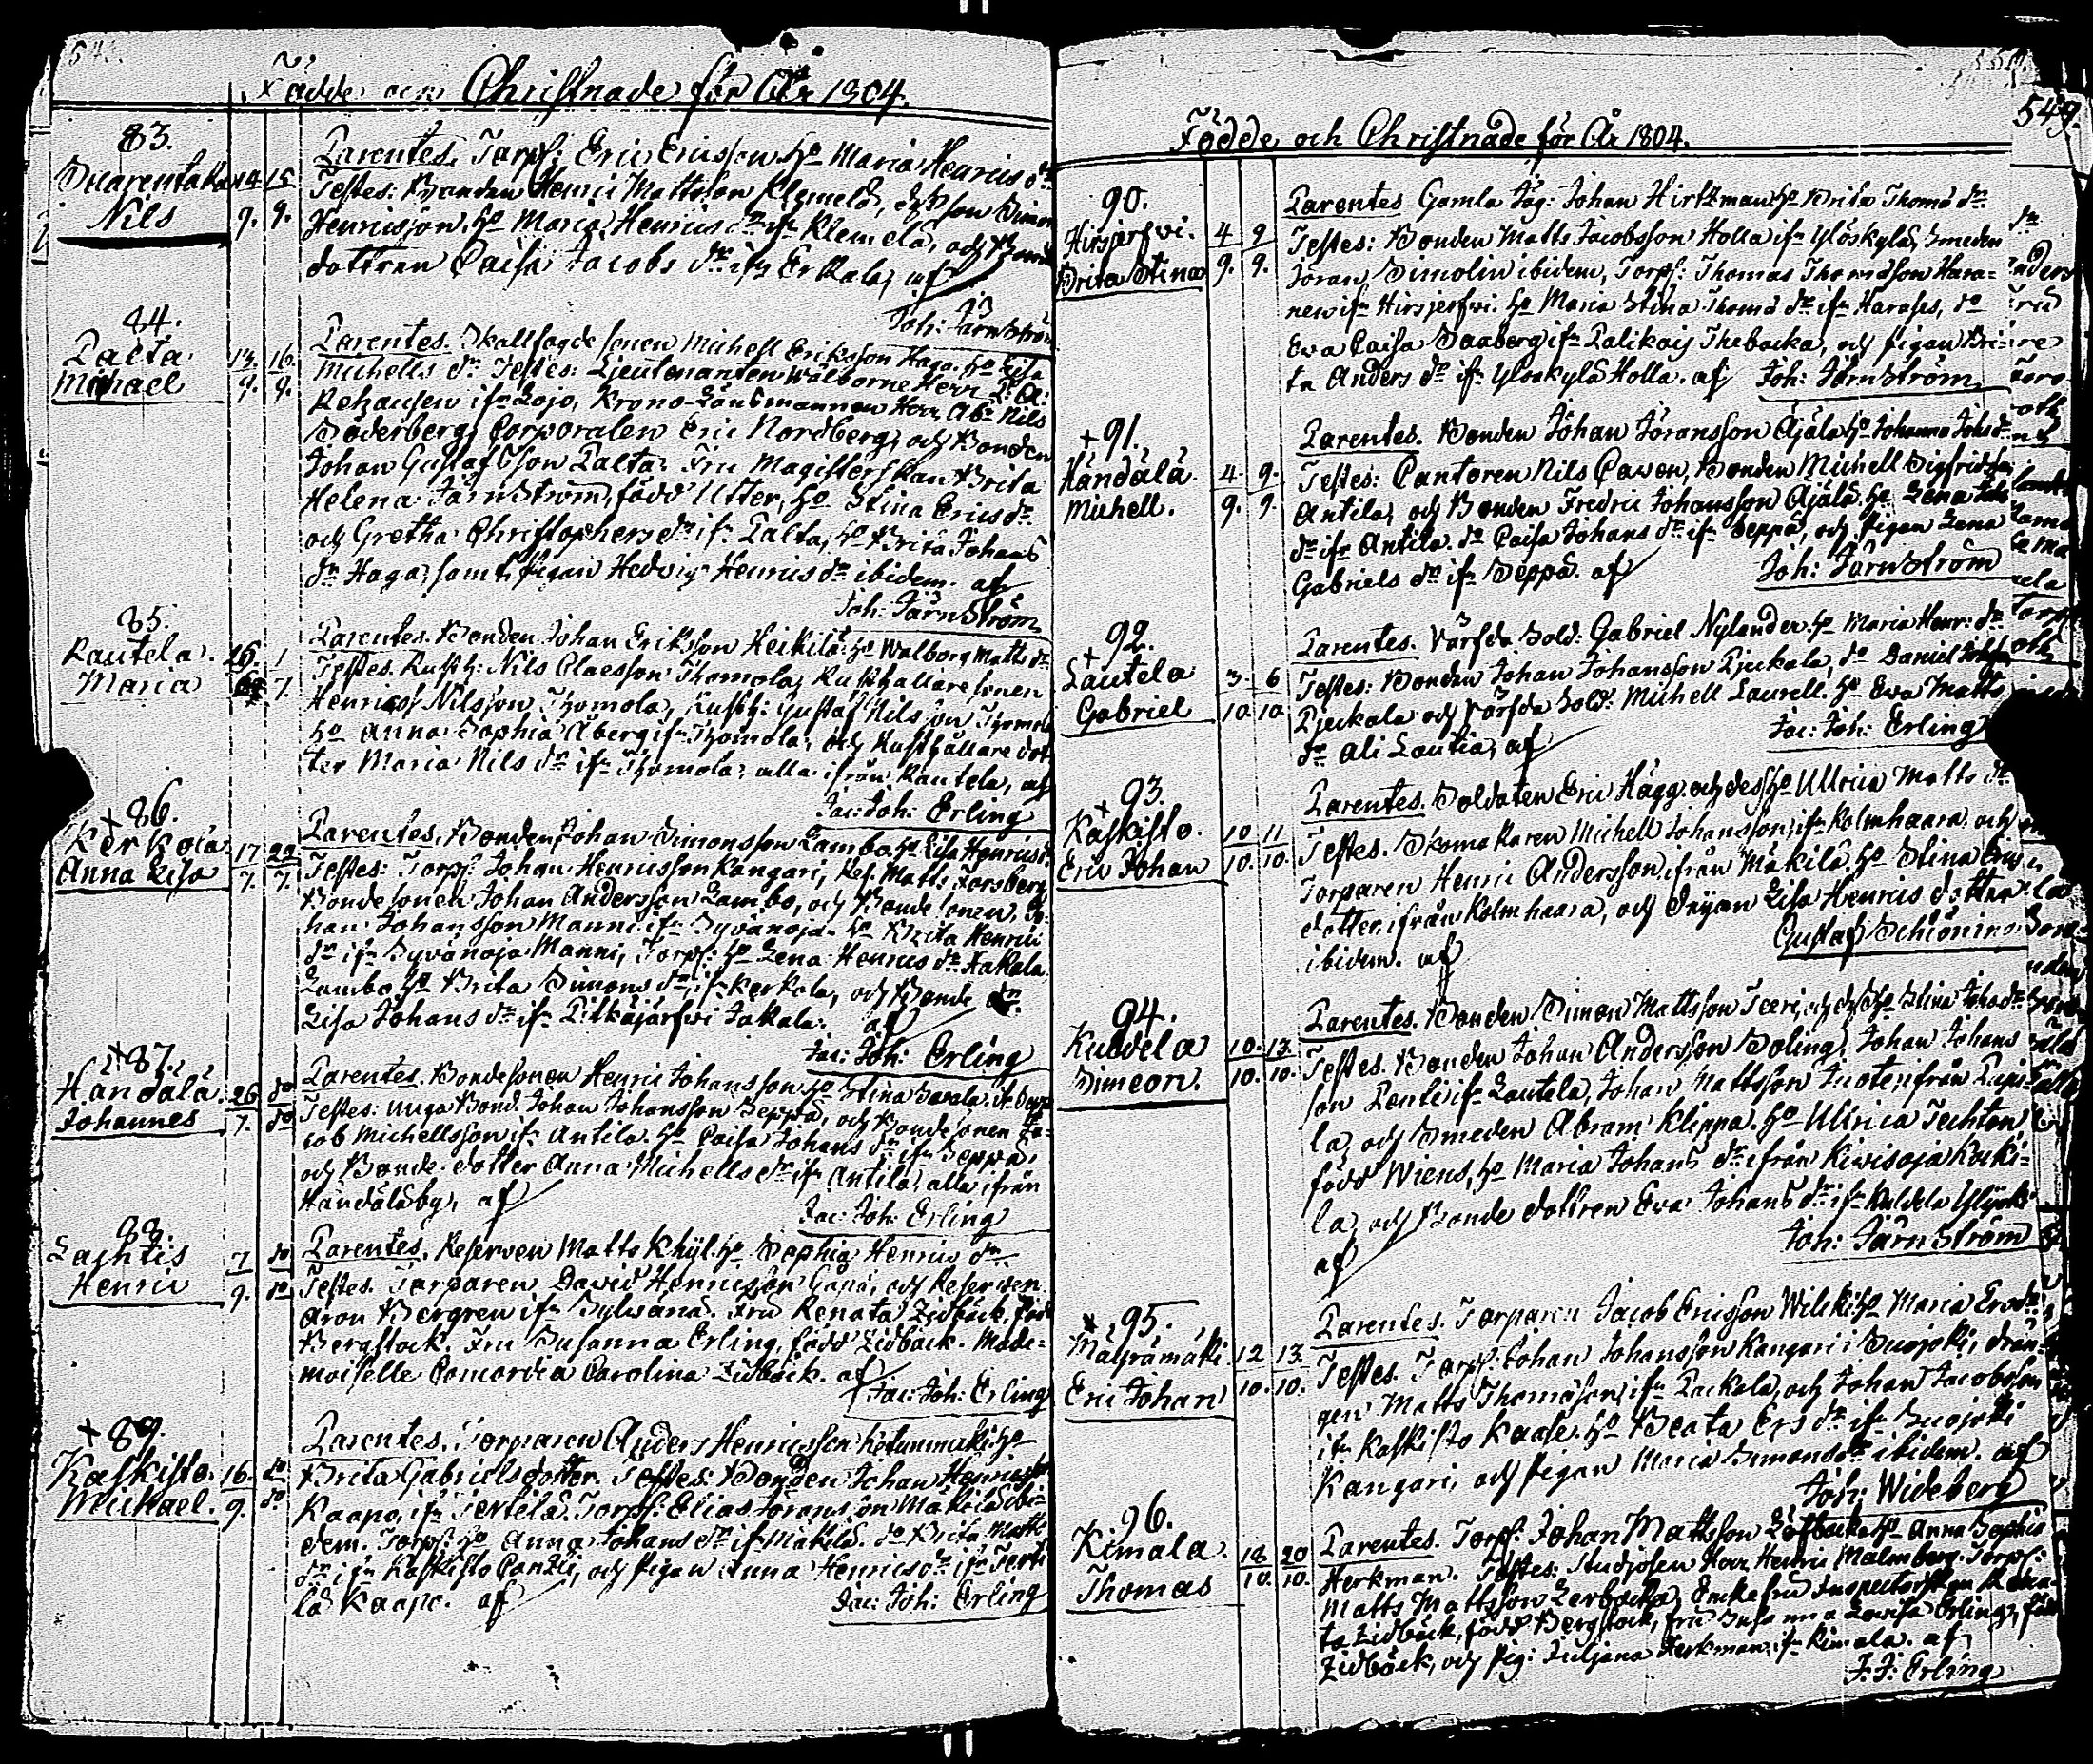 548.
Födde och Christnade för År 1804.
83.
Suarentaka 14. 15
Nils 9. 9.
Parentes. Torp: Eric Ericsson h:o Maria Henrics dr.
Testes: Bonden Henric Mattsson Klemelä, dess son Simon
Henricsson. h:o Maria Henrics dr ifr. Klemelä, och Bonde
dottren Caisa Jacobs dr ifr Erkala, af
Joh: Järnström
84.
Palta 13. 16.
Michael 9. 9.
Parentes. Skallfogde sonen Michell Eriksson Haga. h:o Lisa
Michells dr. Testes: Lieutenanten Wälborne Herr
Rehausen ifr Lojo, Krono-Länsmannen Herr Ab: Nils
Söderberg, Corporalen Eric Nordberg, och Bonden
Johan Gustafsson Palta. Fru Magisterskan Brita
Helena Järnström, född Utter, h:o Stina Erics dr.
och Gretha Christophers dr ifr. Palta, h:o Brita Johans
dr. Haga, samt Pigan Hedvig Henrics dr ibidem. af
Joh: Järnström
85.
Rautela. 26. 1
Maria 7.
Parentes. Bonden Johan Eriksson Heikilä. h:o Walborg Matts dr
Testes. Rusth: Nils Claesson Thomola, Rusthållare sonen
Henric Nilsson Thomola, Rusth: Gustaf Nilsson Thomola
h:o Anna Sophia Åberg ifr Thomola, och Rusthållare dot=
ter Maria Nils dr ifr Thomola, alla ifrån Rautela, af
Jac: Joh: Erling
+86.
Kerkola 17. 22
Anna Lisa 7. 7.
Parentes. Bonden Johan Simonsson Lambo. h:o Lisa Henrics dr.
Testes: Torp: Johan Henricsson Kangari, Res. Matts Forsberg
Bondesonen Johan Andersson Lambo, och Bonde sonen Jo=
han Johansson Manni ifr Syvänoja. h:o Brita Henrics
dr ifr Syvänoja Manni, Torp: h:o Lena Henrics dr. Hakala
Lambo h:o Brita Simons dr, ifr Kerkola, och Bonde dr.
Lisa Johans dr ifr Pitkäjärfwi Jakala. af
Jac: Joh: Erling
+87.
Handälä. 26. do
Johannes 7. do
Parentes. Bondesonen Henric Johansson h:o Stina
Testes: unga Bond. Johan Johansson Seppä, och Bondesonen Ja=
cob Michellsson ifr Antila. h:o Caisa Johans dr ifr Seppä,
och Bonde dotter Anna Michells dr ifr Antila, alla ifrån
Handäläby, af
Jac: Joh: Erling
88.
Lachtis 7 do
Henric 9. do
Parentes. Reserven Matts Khyl. h:o Sophia Henrics dr.
Testes. Torparen David Henricsson och Reserven
Aron Bergren ifr Sylwänä. Fru Renata Zidbäck, född
Bergstock. Fru Susanna Erling, född Zidbäck. Made=
moiselle Concordia Carolina Zidbäck. af
Jac: Joh: Erling
+89.
Kaskisto. 16. do
Michael. 9. do
Parentes. Torparen Anders Henricsson Ketunmäki. h:o
Brita Gabrielsdotter. Testes: Bonden Johan Henricsson
Kaapo, ifr Tertilä. Torp: Elias Göransson Mäkilä ibi=
dem. Torp: h:o Anna Johans dr if. Mäkilä. do Brita Matts
dr ifr Kaskisto och Pigan Anna Henrics dr ifr Terti
lä Kaapo. af Jac: Joh: Erling
549.
Födde och Christnade för År 1804.
90.
Hirsjerfwi. 4 9
Brita Stina 9. 9.
Parentes Gamla Johan Hirtzman h:o Brita Thoms dr.
Testes: Bonden Matts Jacobsson Holla ifr Ylöskylä, Smeden
Jöran Simolin ibidem, Torp: Thomas Thomasson Hara=
nen ifr Hirsjerfwi. h:o Maria Stina Thoms dr ifr Harases, do
Eva Caisa Saxberg ifr Palikais Thebacka, och Pigan Bri=
ta Anders dr ifr Ylöskylä Holla. af Joh: Järnström
+91.
Händälä. 4. 9.
Michell. 9. 9.
Parentes. Bonden Johan Göransson Äjälä h:o Johanna Johs dr
Testes: Cantoren Nils Caven, Bonden Michell Sigfridsson
Antila, och Bonden Fredric Johansson Äjälä. h:o Lena Johs
dr ifr Antila. do Caisa Johans dr ifr Seppä, och Pigan Lena
Gabriels dr ifr Seppä. af Joh: Järnström
92.
+
Lautela 3. 6
Gabriel 10. 10.
Parentes. Värfda Sold: Gabriel Nylander h:o Maria Henr: dr.
Testes: Bonden Johan Johansson Pjeckala, do Daniel
Pjeckala och Värfda Sold: Michell Laurell. h:o Ewa Matts
dr Ali Lautia, af Jac: Joh: Erling
+93.
Kaskisto. 10 11
Eric Johan 10. 10.
Parentes. Soldaten Eric Hägg och dess h:o Ullrica Matts dr
Testes. Skomakaren Michell Johansson ifr Kolmhaara och
Torparen Henric Andersson, ifrån Mäkilä. h:o Stina Erics
dotter ifrån Kolmhaara, och Pigan Lisa Henrics dotter
ibidem. af Gustaf Schöning
94.
Kuldela 10. 13.
Simeon. 10. 10.
Parentes. Bonden Simon Mattsson Teeri, och h:o Stina Johs dr
Testes. Bonden Johan Andersson Soling, Johan Johans
son Penti ifr Lautela, Johan Mattsson ifrån
la, och Smeden Abram Klippa. h:o Ullrica Techton
född Wiens, h:o Maria Johans dr ifrån Kiwisoja Kocki=
la, och Bonde dottren Eva Johans dr ifr Kuldela
af Joh: Järnström
+ 95.
Mälyrämäki 12 13.
Eric Johan 10. 10.
Parentes. Torparen Jacob Ericsson h:o Maria Ers dr.
Testes. Torp: Johan Johansson Kangari i Suojoki, drän=
gen Matts Thomasson, ifr Packala, och Johan Jacobsson
ifr Kaskisto Kaase. h:o Beata Ers dr ifr Suojoki
Kangari, och Pigan Maria Simons dr ibidem. af
Joh: Wideberg
96.
Kimala. 18 20
Thomas 10. 10.
Parentes. Torp: Johan Mattsson Löfbacka h:o Anna Sophia
Herkman. Testes: Studiosen Herr Henric Malmberg. Torp:
Matts Mattsson Lerbacka, Enckefru Inspectorskan Rena=
ta Zidbäck, född Bergstock, fru Susanna Lovisa Erling, född
Zidbäck, och Pig: Juliana Herkman, ifr Kimala. af
J: J: Erling